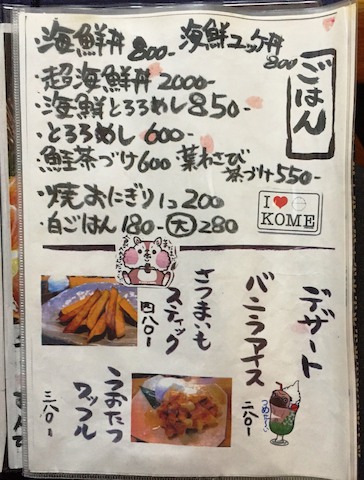 ごはん
海鮮丼 800- 海鮮ユッケ丼 800
・超海鮮丼 2000-
・海鮮とろろめし 850-
・とろろめし 600-
・鮭茶づけ 600 葉わさび茶づけ 550-
・焼おにぎり 1コ 200
・白ごはん 180- 大 280
I ❤ KOME
デザート
バニラアイス 二八〇-
さつまいもスティック 四八〇-
うおたつワッフル 三八〇-